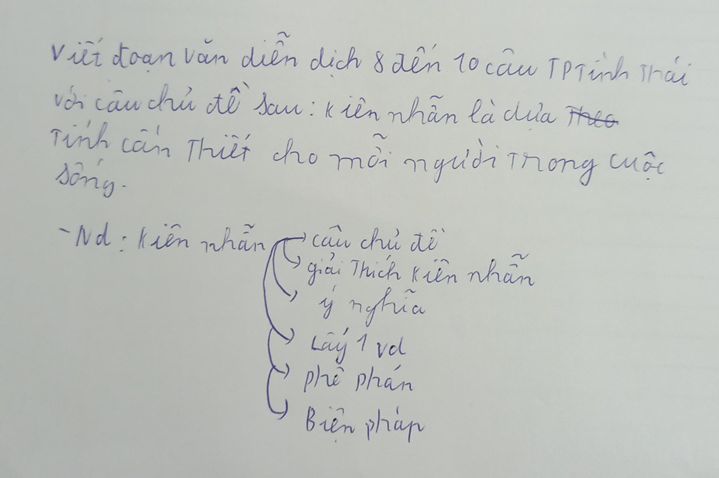 Viết đoạn văn diễn dịch 8 đến 10 câu TP Tình Thái
với câu chủ đề sau: Kiên nhẫn là dựa Theo
Tính cần Thiết cho mỗi người Trong cuộc
sống.
- Nd: Kiên nhẫn → câu chủ đề
giải Thích Kiên nhẫn
ý nghĩa
Lấy 1 vd
phê phán
Biện pháp